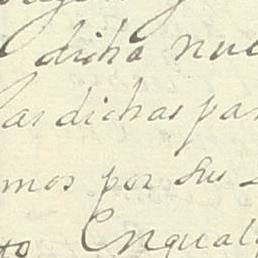 dicha nue
las dichas par
mos por sus
to Enqual